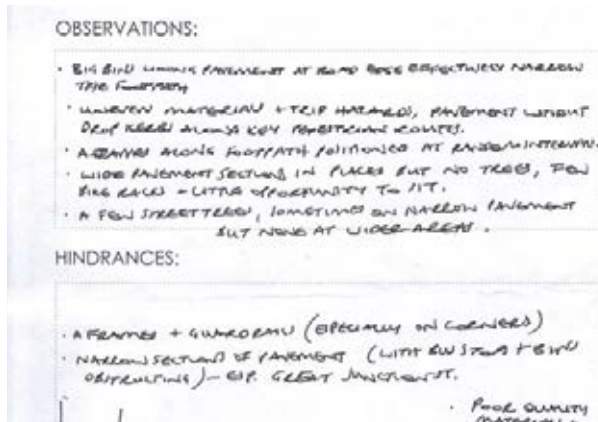 OBSERVATIONS:
· BIG BINS LINING PAVEMENT AT ROAD EDGE EFFECTIVELY NARROW
THE FOOTPATH
· UNEVEN MATERIALS + TRIP HAZARDS, PAVEMENT WITHOUT
DROP KERBS ALONG KEY PEDESTRIAN ROUTES.
· A-FRAMES ALONG FOOTPATH POSITIONED AT RANDOM INTERVALS.
· WIDE PAVEMENT SECTIONS IN PLACES BUT NO TREES, FEW
BIKE RACKS - LITTLE OPPORTUNITY TO SIT.
· A FEW STREET TREES, SOMETIMES ON NARROW PAVEMENT
BUT NONE AT WIDER AREAS.
HINDRANCES:
· A FRAMES + GUARDRAILS (ESPECIALLY ON CORNERS)
· NARROW SECTIONS OF PAVEMENT (WITH BUS STOPS + BINS
OBSTRUCTING) - ESP. GREAT JUNCTION ST.
· POOR QUALITY
MATERIALS